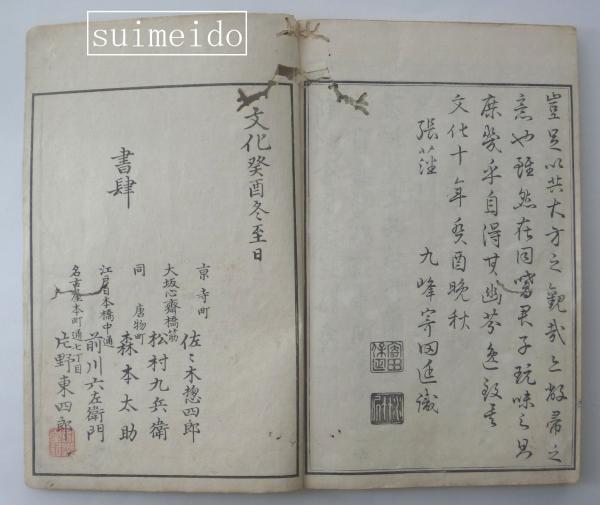 suimeido
豈足以共大方之観哉之故帚之
意也雖然在同嗜君子玩味之則
庶幾乎自得其幽芬逸致矣
文化十年癸酉晩秋
張藩 九峰寄田廷識
文化癸酉冬至日
書肆
京寺町
佐々木惣四郎
大坂心齋橋筋
松村九兵衛
同 唐物町
森本太助
江戸日本橋中通
前川六左衛門
名古屋本町通七丁目
片野東四郎